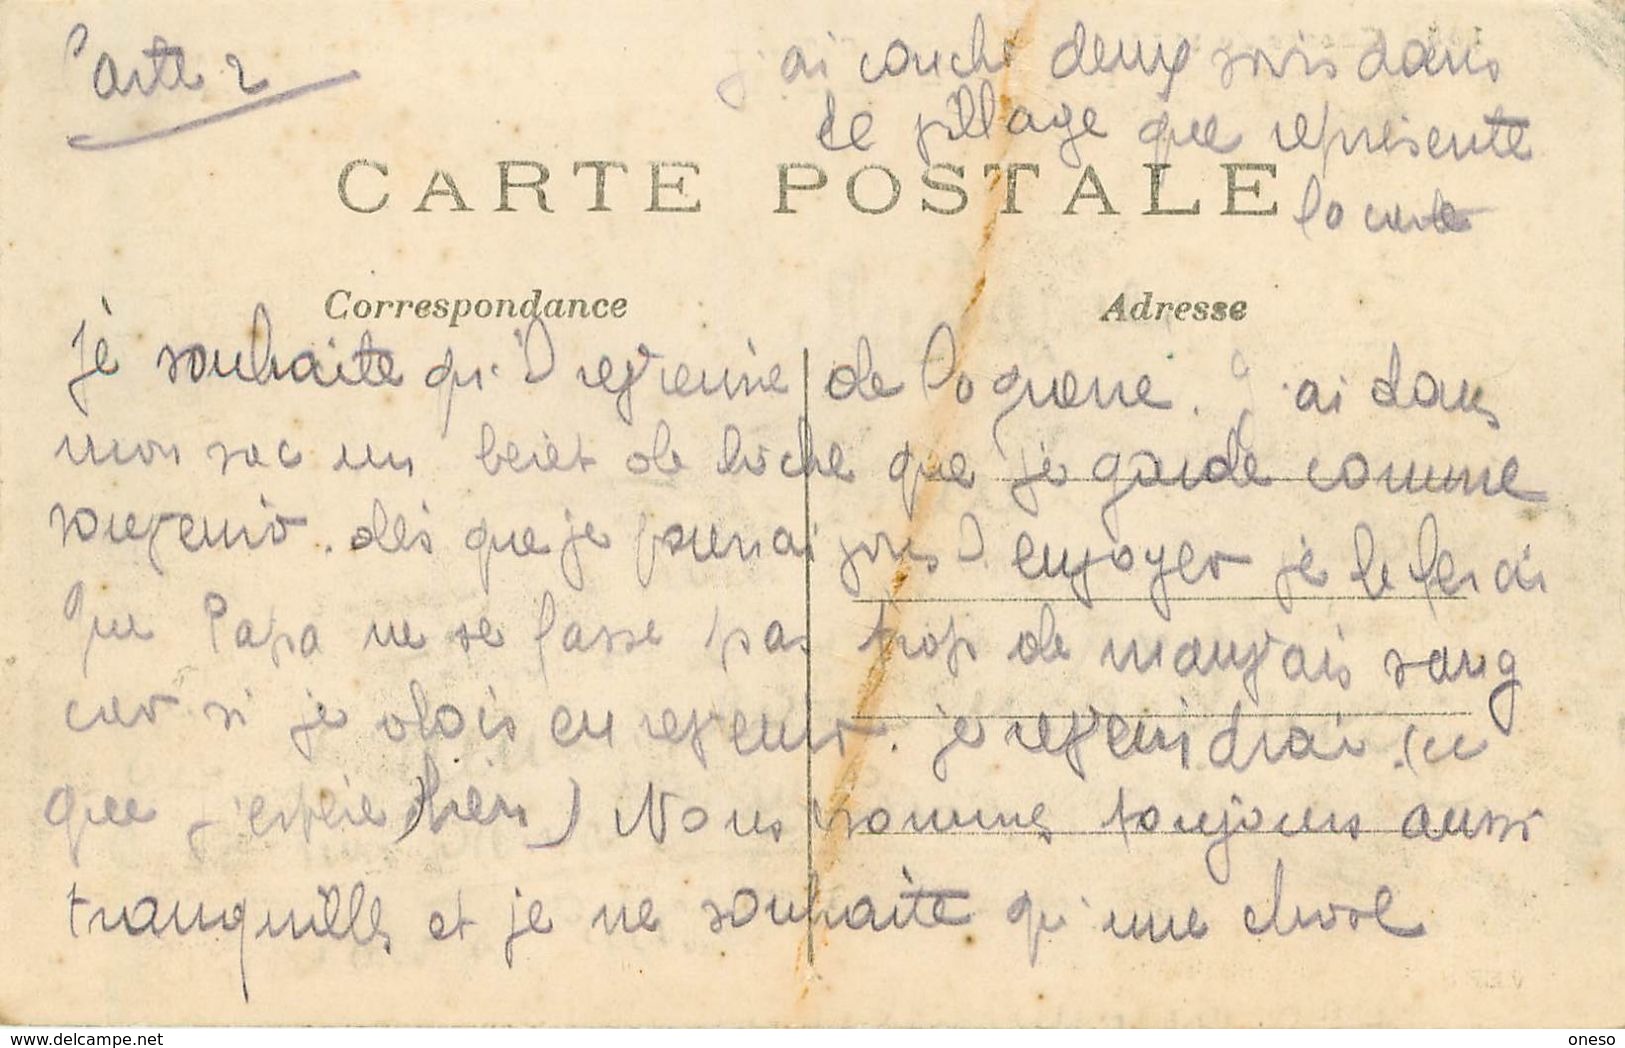 Carte 2
j'ai couché deux soirs dans
ce village que représente
la carte
CARTE POSTALE
Correspondance
Adresse
je souhaite qu'il revienne de la guerre. J'ai dans
mon sac un beret de boche que je garde comme
souvenir. dès que je pourrai vous l envoyer je le ferai
Que Papa ne se fasse pas trop de mauvais sang
car si je dois en revenir. je reviendrai. (ce
que j'espère bien) Nous sommes toujours aussi
tranquilles et je ne souhaite qu'une chose
delcampe.net
oneso